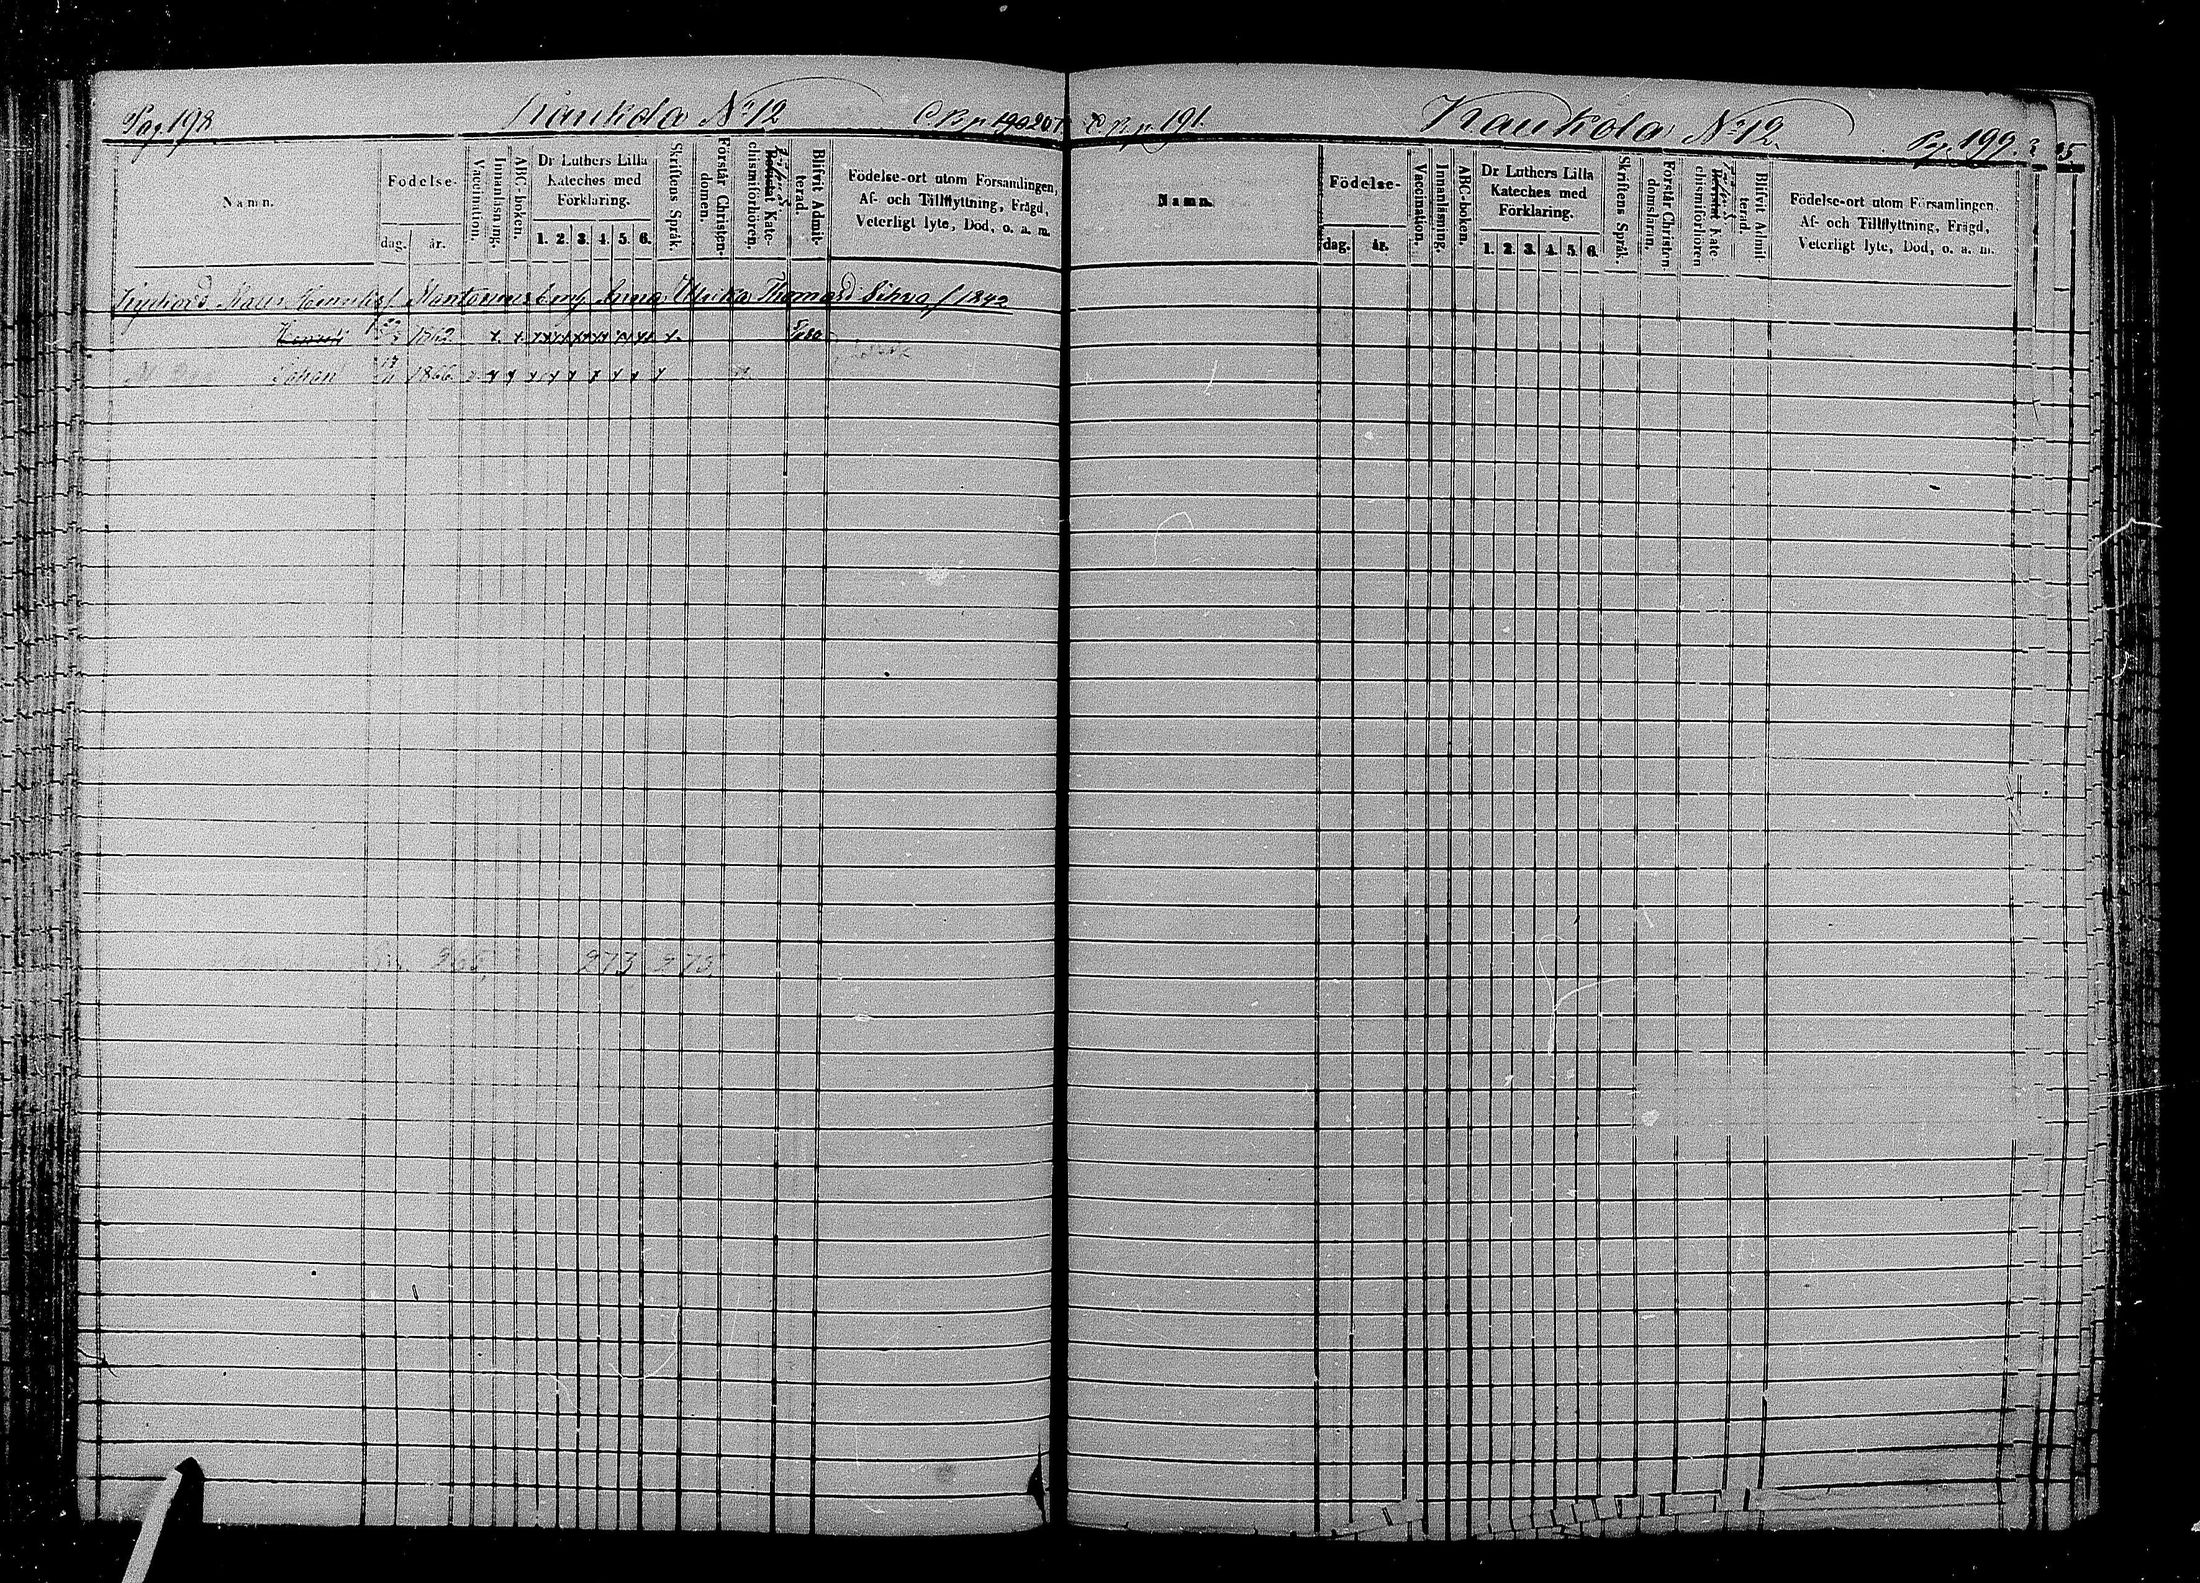 Pag. 198. Kaukola No 12 C.B.p. 190 201.
Namn.
Födelse-
dag. år.
Vaccination.
Innanläsning.
ABC-boken.
Dr Luthers Lilla Kateches med Förklaring.
1. 2. 3. 4. 5. 6.
Skriftens Språk.
Förstår Christendomen.
chismiförhören.
Blifvit Admitterad.
Födelse-ort utom Församlingen,
Af- och Tillflyttning, Frägd,
Veterligt lyte, Död, o. a. m.
Anna Ulrika Thomasd Sihva f 1842
Henrik 1862 x x x x x x x x x
Johan 17/11 1866 x x x x x x x x x
273 273
C.B.p. 191. Kaukola No 12. Pag. 199.
Namn.
Födelse-
dag. år.
Vaccination.
Innanläsning.
ABC-boken.
Dr Luthers Lilla
Kateches med
Förklaring.
1. 2. 3. 4. 5. 6.
Skriftens Språk.
Förstår Christendomsläran.
Kate chismiförhören
Blifvit Admitterad.
Födelse-ort utom Församlingen,
Af- och Tillflyttning, Frägd,
Veterligt lyte, Död, o. a. m.